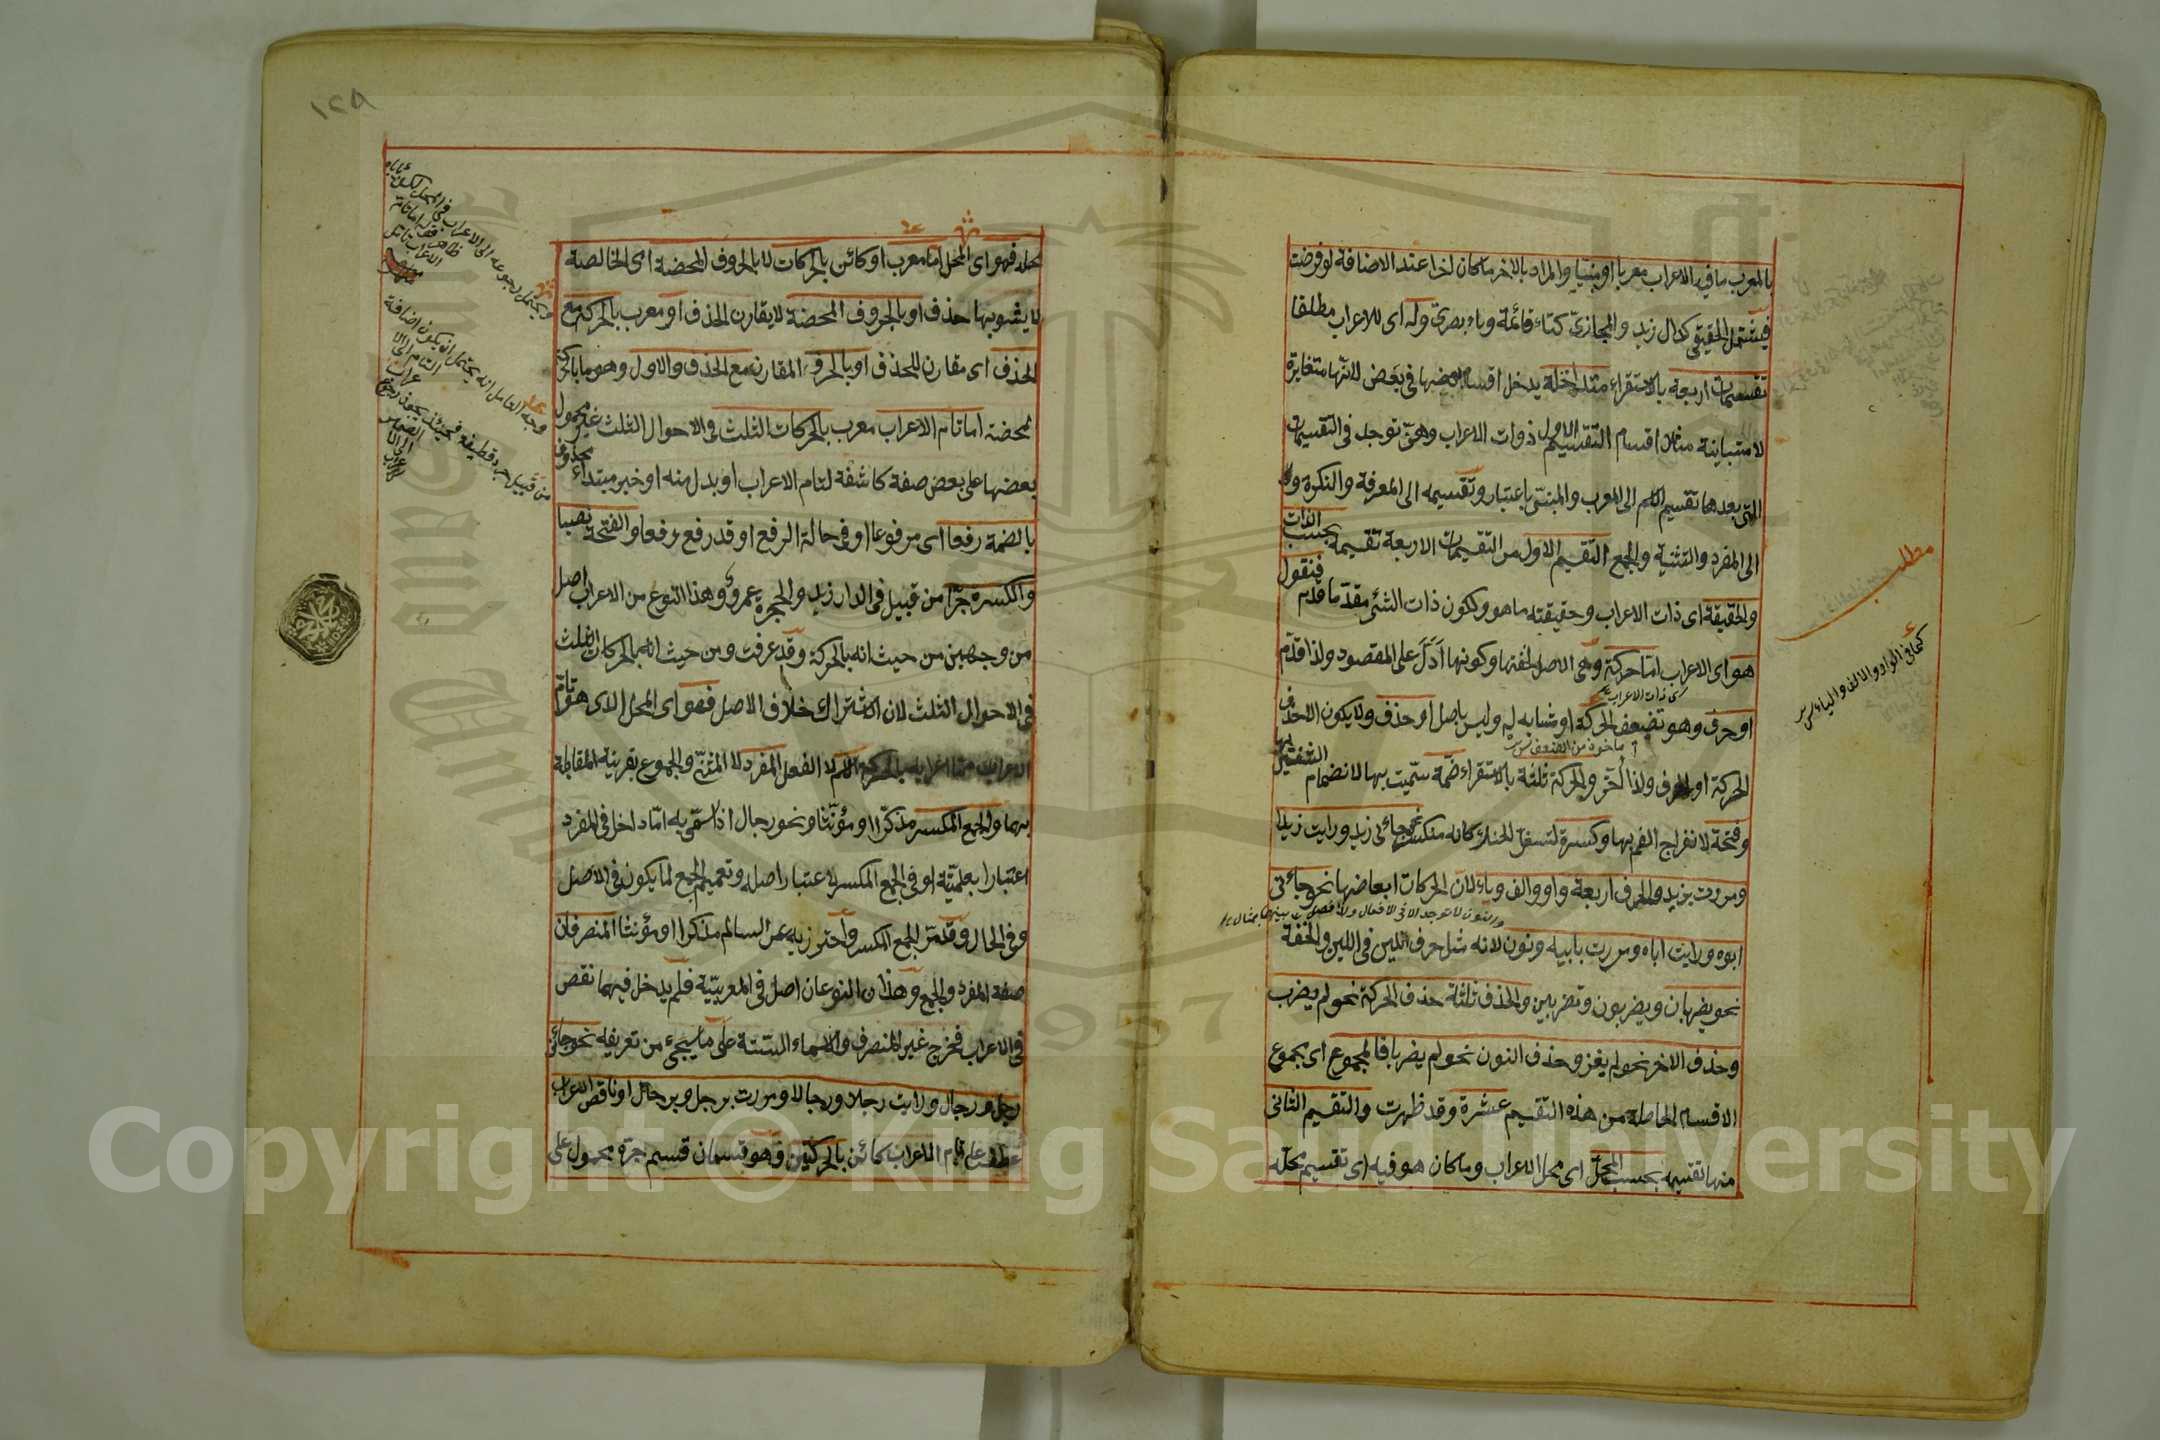 بالمعرب ما فيه الاعراب معربا او مبنيا والمراد بالاخر ما كان اخرا عند الاضافة لو فرضت
فيشتمل الحقيقي كدال زيد والمجازى كتاء قائمة وياء بصرى وله اى للاعراب مطلقا
تقسيمات اربعة بالاستقراء متداخلة يدخل اقسام بعضها فى بعض لانها متغايرة
لا متباينة مثلا اقسام التقسيم الاول ذوات الاعراب وهى توجد فى التقسيمات
التى بعدها تقسيم الكلم الى المعرب والمبنى باعتبار وتقسيمه الى المعرفة والنكرة
الى المفرد والتثنية والجمع التقسيم الاول من التقسيمات الاربعة تقسيمه بحسب الذات
والحقيقة اى ذات الاعراب وحقيقته ما هو ولكون ذات الشئ مقدما قدم فنقول
هو اى الاعراب اما حركة وهى الاصل لخفتها وكونها ادل على المقصود ولذا قدم
اى ذات الاعراب
او حرف وهو تضعيف الحركة او شابه له وليس باصل او حذف ولا يكون الا حذف
مأخوذ من الضعف
الحركة او الحرف ولذا اخر والحركة ثلثة بالاستقراء ضمة سميت بها لانضمام الشفتين
وفتحة لانفراج الفم بها وكسرة لتسفل الحنك كانه منكسر نحو جائنى زيد ورايت زيدا
ومررت بزيد والحرف اربعة واو والف وياء لان الحركات ابعاضها نحو جائنى
والنون لا توجد الا فى الافعال
ابوه ورايت اباه ومررت بابيه ونون لانه مثل حرف اللين فى اللين والخفة
نحو يضربان ويضربون وتضربين والحذف ثلثة حذف الحركة نحو لم يضرب
وحذف الاخر نحو لم يغز وحذف النون نحو لم يضربا فالمجموع اى مجموع
الاقسام الحاصلة من هذه التقسيم عشرة وقد ظهرت والتقسيم الثانى
منها تقسيمه بحسب المحل اى محل الاعراب وما كان هو فيه اى تقسيم محله
مطلب
كما فى الواو والالف والياء
١٢٥
محله فهو اى المحل اما معرب او كائن بالحركات لا بالحروف المحضة اى الخالصة
لا يشوبها حذف او بالحروف المحضة لا يقارن الحذف او معرب بالحركة مع
الحذف اى مقارن للحذف او بالحرف المقارن مع الحذف والاول وهو ما بالحركة
المحضة اما تام الاعراب معرب بالحركات الثلث فى الاحوال الثلث غير محمول
بعضها على بعض صفة كاشفة لتام الاعراب او بدل منه او خبر مبتداء محذوف
بالضمة رفعا اى مرفوعا او فى حالة الرفع او قد رفع رفعا والفتحة نصبا
والكسرة جرا من قبيل فى الدار زيد والحجرة عمرو وهذا النوع من الاعراب اصل
من وجهين من حيث انه بالحركة وقد عرفت ومن حيث انه بالحركات الثلث
فى الاحوال الثلث لان الاشتراك خلاف الاصل فهو اى المحل الذى هو تام
الاعراب مما اعرابه بالحركة الاسم لا الفعل المفرد لا المثنى والمجموع بقرينة المقابلة
بهما والجمع المكسر مذكرا او مؤنثا ونحو رجال اذا سمى به اما داخل فى المفرد
اعتبارا بعلميته او فى الجمع المكسر لاعتبار اصله وتعميم الجمع لما يكون فى الاصل
وفى الحال وقد مر الجمع المكسر واحترز به عن السالم مذكرا او مؤنثا المنصرفان
صفة المفرد والجمع وهذان النوعان اصل فى المعربية فلم يدخل فيهما نقص
فى الاعراب فخرج غير المنصرف والاسماء الستة على ما سيجئ من تعريفه نحو جائنى
رجل ورجال ورايت رجلا ورجالا ومررت برجل وبرجال او ناقص الاعراب
عطف على تام الاعراب كائن بالحركتين وهو قسمان قسم جره محمول على
ويحتمل رجوعه الى الاعراب فى المحل
وجه العامل انه يحتمل ان يكون اضافة
التام الى الاعراب
من قبيل جرد قطيفة فحينئذ يجوز رجوع
الضمير الى الاعراب